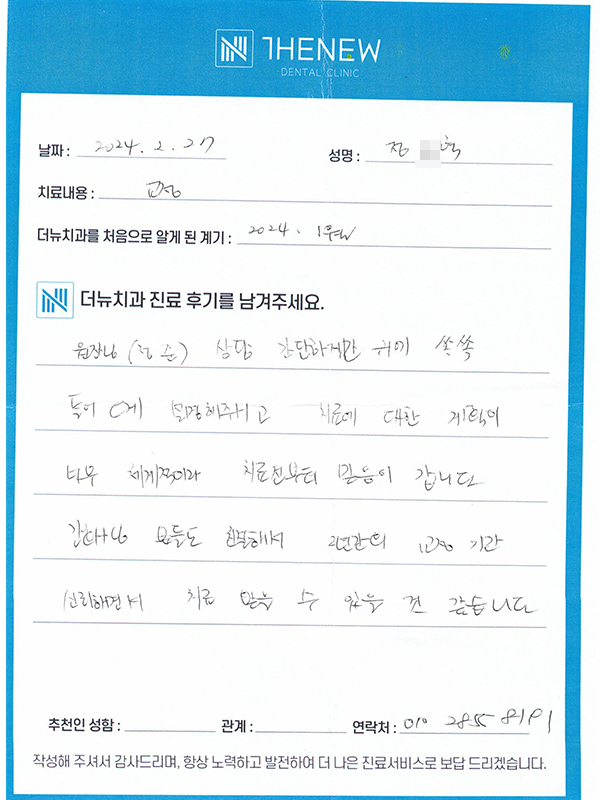 THENEW
DENTAL CLINIC
날짜 : 2024. 2. 27
성명 : 정 혁
치료내용 : 교정
더뉴치과를 처음으로 알게 된 계기 : 2024. 1월
더뉴치과 진료 후기를 남겨주세요.
원장님 (정 준) 상담 간단하지만 귀에 쏙쏙
들어오게 설명해주시고 치료에 대한 계획이
너무 체계적이라 치료전부터 믿음이 갑니다
간호사님 분들도 친절해서 2년간의 교정 기간
신뢰하면서 치료 받을 수 있을 것 같습니다
추천인 성함 :
관계 :
연락처 : 010 2855 8191
작성해 주셔서 감사드리며, 항상 노력하고 발전하여 더 나은 진료서비스로 보답 드리겠습니다.